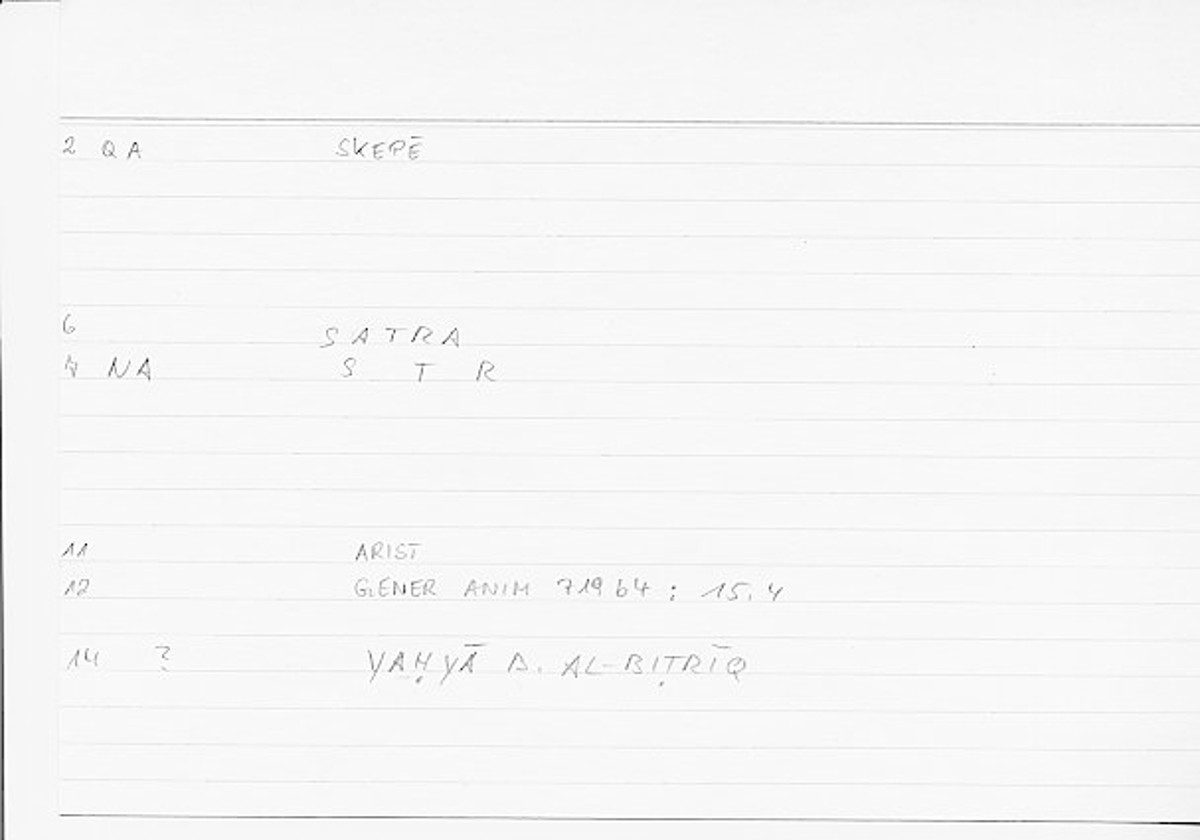 2 QA SKEPĒ
6 SATRA
7 NA S T R
11 ARIST
12 GENER ANIM 719 b4 ; 15.4
14 ? YAḤYĀ B. AL-BIṬRĪQ